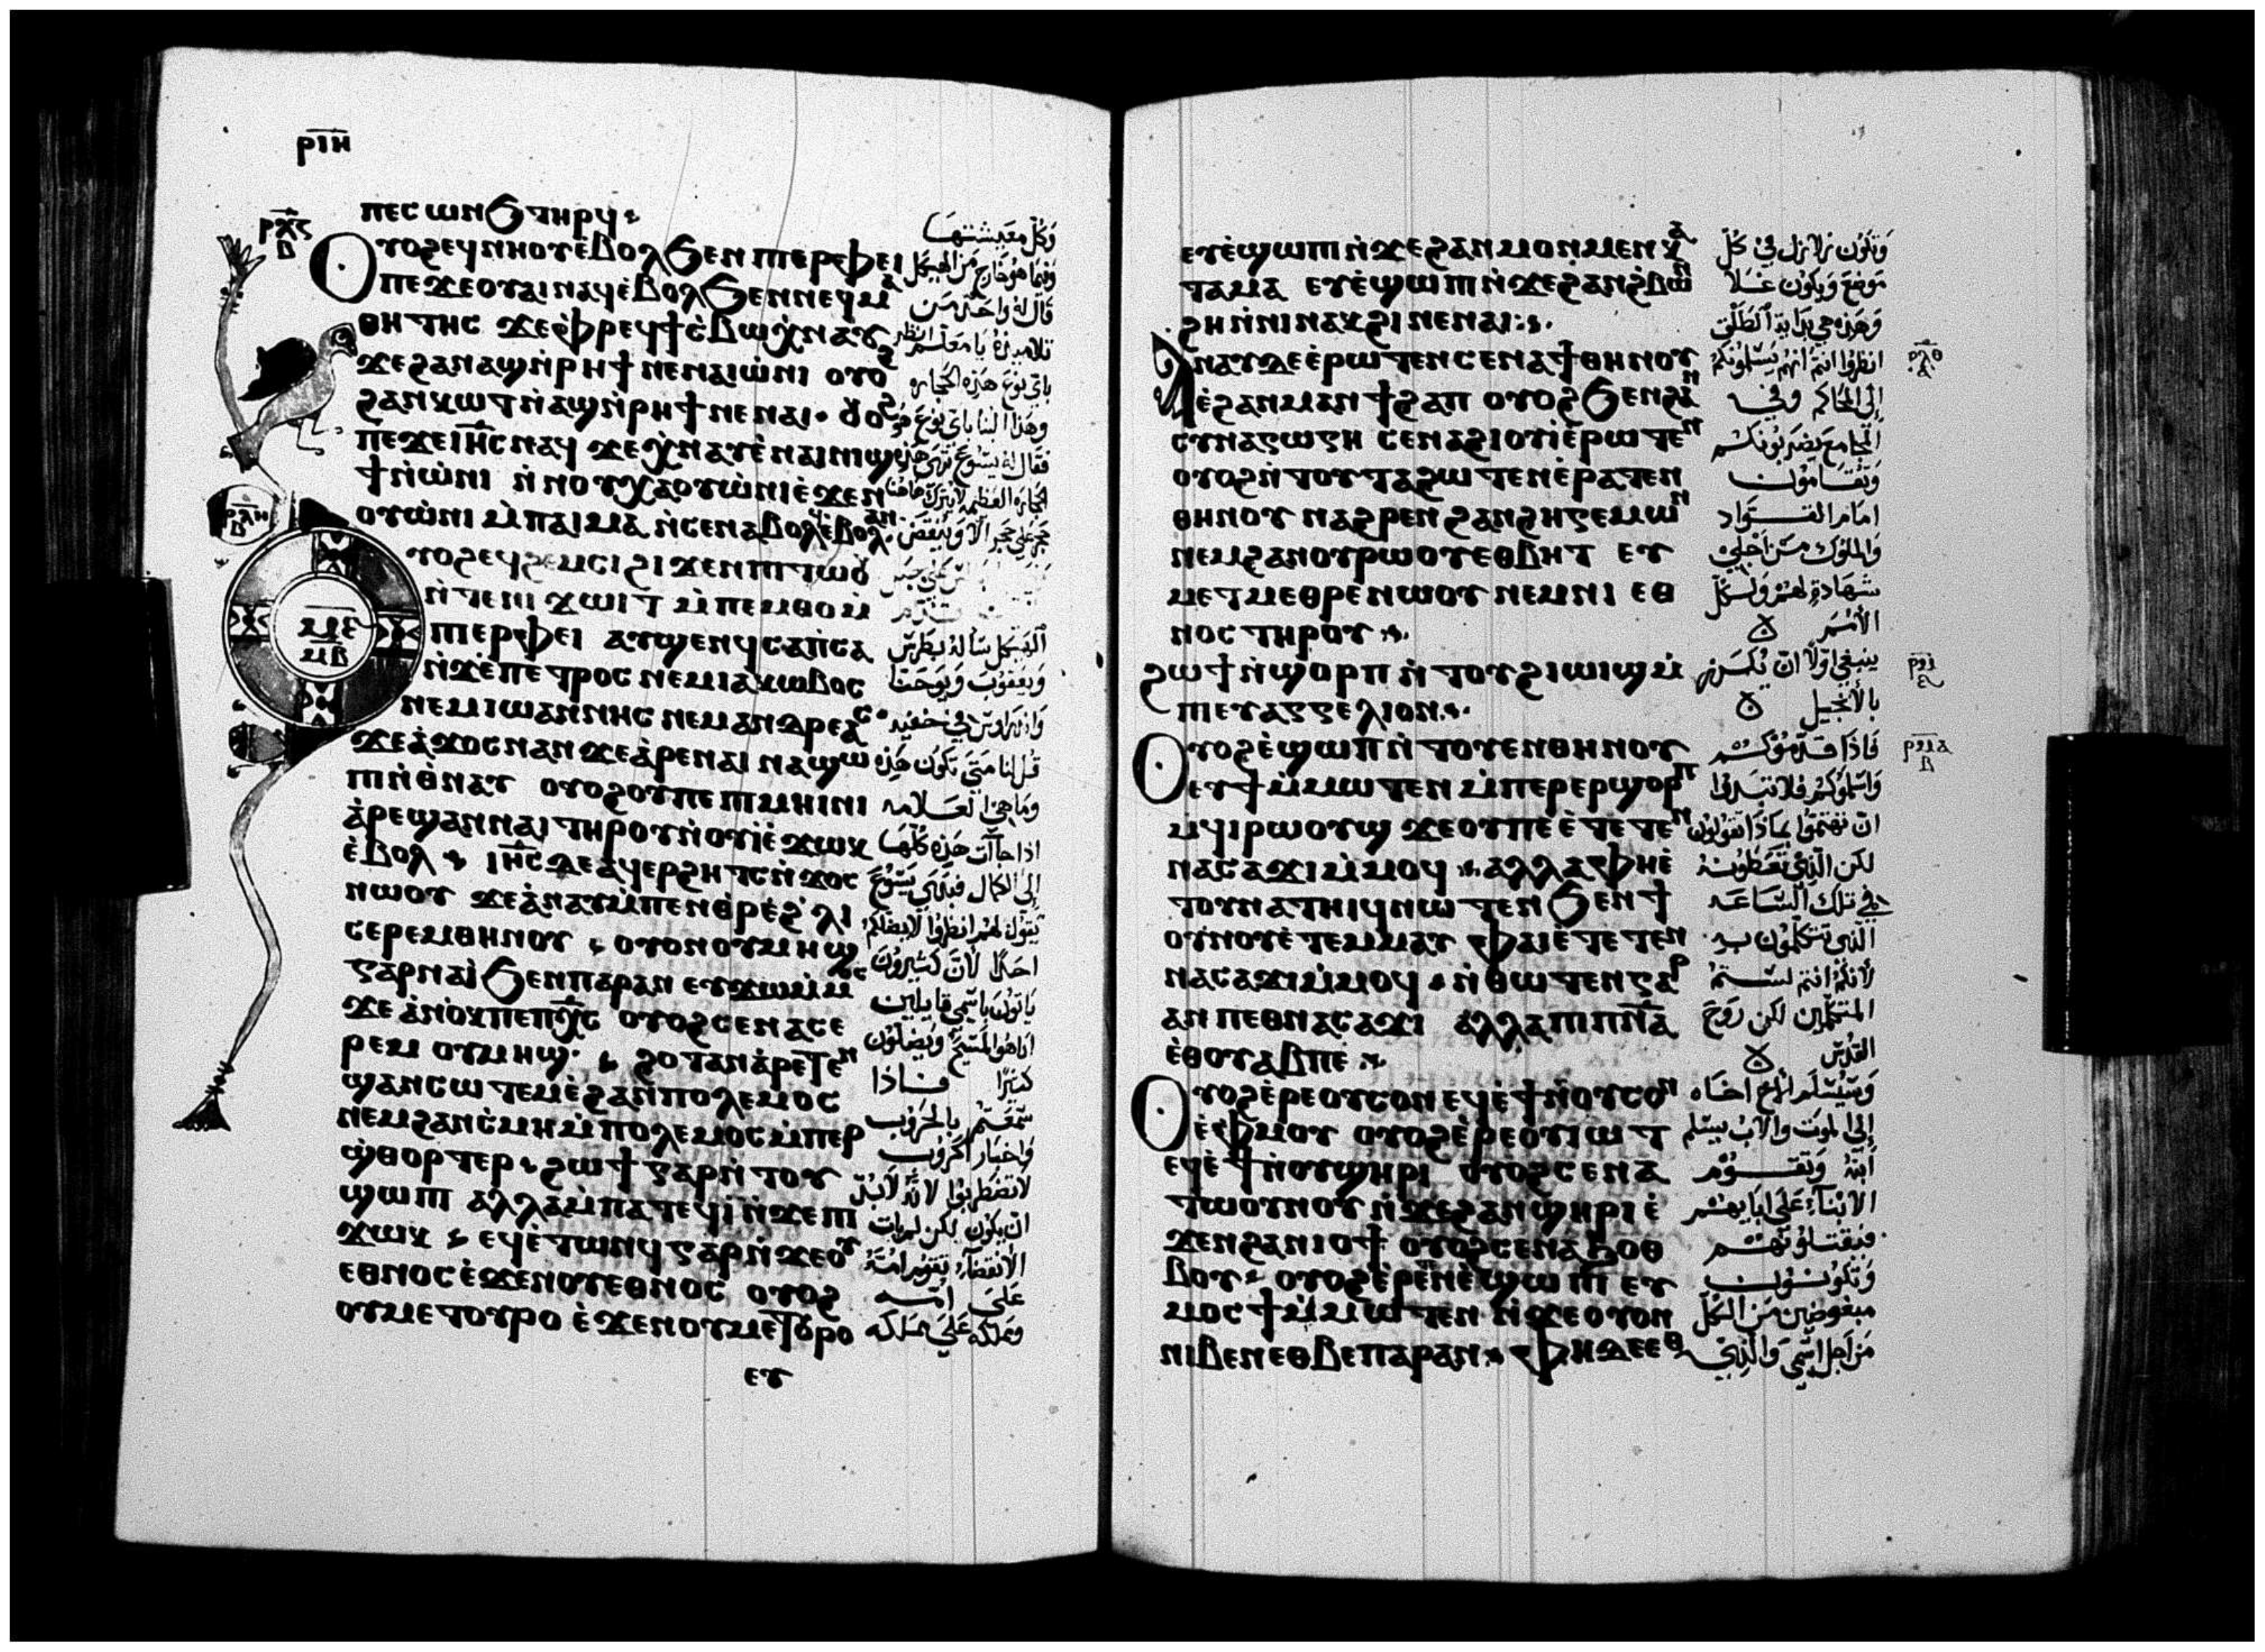 ⲣⲓⲏ
ⲡⲉⲥⲱⲛϧ ⲧⲏⲣϥ
ⲟⲩⲟϩ ⲉϥⲛⲏⲟⲩ ⲉ̀ⲃⲟⲗ ϧⲉⲛ ⲡⲓⲉⲣⲫⲉⲓ
ⲡⲉϫⲉ ⲟⲩⲁⲓ ⲛⲁϥ ⲉ̀ⲃⲟⲗ ϧⲉⲛ ⲛⲉϥⲙⲁ
ⲑⲏⲧⲏⲥ ϫⲉ ⲫⲣⲉϥϯⲥⲃⲱ ⲭ̀ⲛⲁⲩ
ϫⲉ ϩⲁⲛⲁϣ ⲛ̀ⲣⲏϯ ⲛⲉ ⲛⲁⲓⲱ̀ⲛⲓ ⲟⲩⲟϩ
ϩⲁⲛⲕⲱⲧ ⲛ̀ⲁϣ ⲛ̀ⲣⲏϯ ⲛⲉ ⲛⲁⲓ ⲟⲩⲟϩ
ⲡⲉϫⲉ ⲓⲏⲥ ⲛⲁϥ ϫⲉ ⲭ̀ⲛⲁⲩ ⲉ̀ⲛⲁⲓⲛⲓϣ
ϯ ⲛ̀ⲱⲛⲓ ⲛ̀ⲛⲟⲩⲭⲁ ⲟⲩⲱ̀ⲛⲓ ⲉ̀ϫⲉⲛ
ⲟⲩⲱ̀ⲛⲓ ⲙ̀ⲡⲁⲓⲙⲁ ⲛ̀ⲥⲉⲛⲁⲃⲟⲗϥ ⲉ̀ⲃⲟⲗ ⲁⲛ
ⲟⲩⲟϩ ⲉϥϩⲉⲙⲥⲓ ϩⲓϫⲉⲛ ⲡⲓⲧⲱⲟⲩ
ⲛ̀ⲧⲉ ⲛⲓϫⲱⲓⲧ ⲙ̀ⲡⲉⲙⲑⲟ ⲙ̀
ⲡⲓⲉⲣⲫⲉⲓ ⲁⲩϣⲉⲛϥ ⲥⲁⲡ̀ⲥⲁ
ⲛ̀ϫⲉ ⲡⲉⲧⲣⲟⲥ ⲛⲉⲙ ⲓⲁⲕⲱⲃⲟⲥ
ⲛⲉⲙ ⲓⲱⲁⲛⲛⲏⲥ ⲛⲉⲙ ⲁⲛⲇⲣⲉⲁⲥ
ϫⲉ ⲁ̀ϫⲟⲥ ⲛⲁⲛ ϫⲉ ⲁ̀ⲣⲉ ⲛⲁⲓ ⲛⲁϣⲱ
ⲡⲓ ⲛ̀ⲑⲛⲁⲩ ⲟⲩⲟϩ ⲟⲩ ⲡⲉ ⲡⲓⲙⲏⲓⲛⲓ
ⲁ̀ⲣⲉϣⲁⲛ ⲛⲁⲓ ⲧⲏⲣⲟⲩ ⲛ̀ⲟⲩⲓ̀ ⲉ̀ϫⲱⲕ
ⲉ̀ⲃⲟⲗ ⲓⲏⲥ ⲇⲉ ⲁϥⲉⲣϩⲏⲧⲥ ⲛ̀ϫⲟⲥ
ⲛⲱⲟⲩ ϫⲉ ⲁ̀ⲛⲁⲩ ⲙ̀ⲡⲉⲛⲑⲣⲉ ϩ̀ⲗⲓ
ⲥⲉⲣⲉⲙ ⲑⲏⲛⲟⲩ ⲟⲩⲟⲛ ⲟⲩⲙⲏϣ
ⲅⲁⲣ ⲛⲁⲓ̀ ϧⲉⲛ ⲡⲁⲣⲁⲛ ⲉⲩϫⲱ ⲙ̀ⲙⲟⲥ
ϫⲉ ⲁ̀ⲛⲟⲕ ⲡⲉ ⲡⲭⲥ ⲟⲩⲟϩ ⲥⲉⲛⲁⲥⲉ
ⲣⲉⲙ ⲟⲩⲙⲏϣ ϩⲟⲧⲁⲛ ⲁ̀ⲣⲉⲧⲉⲛ
ϣⲁⲛⲥⲱⲧⲉⲙ ⲉ̀ϩⲁⲛⲡⲟⲗⲉⲙⲟⲥ
ⲛⲉⲙ ϩⲁⲛⲥ̀ⲙⲏ ⲙ̀ⲡⲟⲗⲉⲙⲟⲥ ⲙ̀ⲡⲉⲣ
ϣ̀ⲑⲟⲣⲧⲉⲣ ϩⲱϯ ⲅⲁⲣ ⲛ̀ⲧⲟⲩ
ϣⲱⲡⲓ ⲁⲗⲗⲁ ⲙ̀ⲡⲁⲧⲉϥⲓ̀ ⲛ̀ϫⲉ ⲡⲓ
ϫⲱⲕ ⲉϥⲉ̀ⲧⲱⲛϥ ⲅⲁⲣ ⲛ̀ϫⲉ ⲟⲩ
ⲉⲑⲛⲟⲥ ⲉ̀ϫⲉⲛ ⲟⲩⲉⲑⲛⲟⲥ ⲟⲩⲟϩ
ⲟⲩⲙⲉⲧⲟⲩⲣⲟ ⲉ̀ϫⲉⲛ ⲟⲩⲙⲉⲧⲟⲩⲣⲟ
ⲉⲩ
وكل معيشتها
وفيما هو خارج من الهيكل
قال له واحد من
تلاميذه يا معلم انظر
باي نوع هذه الحجاره
وهذا البنا باي نوع هو
الهيكل سأله بطرس
ويعقوب ويوحنا
واندراوس في خفيه
قل لنا متى تكون هذه
وما هي العلامه
اذا جاآت هذه كلها
يقول لهم انظروا لا يضلكم
احدا لان كثيرون
ياتون باسمي قايلين
انا هو المسيح ويضلون
كثيرا فاذا
سمعتم بالحروب
واخبار الحروب
لا تضطربوا لانه لا بد
ان يكون لكن لم يات
الانقضآء تقوم امة
على امه
ومملكه على مملكه
ⲉⲩⲉ̀ϣⲱⲡⲓ ⲛ̀ϫⲉ ϩⲁⲛⲙⲟⲛⲙⲉⲛ ⲕⲁ
ⲧⲁ ⲙⲁ ⲉⲩⲉ̀ϣⲱⲡⲓ ⲛ̀ϫⲉ ϩⲁⲛϩ̀ⲃⲱⲛ
ϩⲏ ⲛ̀ⲛⲓⲛⲁⲕϩⲓ ⲛⲉ ⲛⲁⲓ
ⲁⲛⲁⲩ ⲇⲉ ⲉ̀ⲣⲱⲧⲉⲛ ⲥⲉⲛⲁϯ ⲑⲏⲛⲟⲩ
ⲉ̀ϩⲁⲛⲙⲁⲛϯϩⲁⲡ ⲟⲩⲟϩ ϧⲉⲛ ϩⲁⲛ
ⲥⲩⲛⲁⲅⲱⲅⲏ ⲥⲉⲛⲁϩⲓⲟⲩⲓ̀ ⲉ̀ⲣⲱⲧⲉⲛ
ⲟⲩⲟϩ ⲛ̀ⲧⲟⲩⲧⲁϩⲱⲧⲉⲛ ⲉ̀ⲣⲁⲧⲉⲛ
ⲑⲏⲛⲟⲩ ⲛⲁϩⲣⲉⲛ ϩⲁⲛϩⲏⲅⲉⲙⲱⲛ
ⲛⲉⲙ ϩⲁⲛⲟⲩⲣⲱⲟⲩ ⲉⲑⲃⲏⲧ ⲉⲩ
ⲙⲉⲧⲙⲉⲑⲣⲉ ⲛⲱⲟⲩ ⲛⲉⲙ ⲛⲓⲉⲑ
ⲛⲟⲥ ⲧⲏⲣⲟⲩ
ϩⲱϯ ⲛ̀ϣⲟⲣⲡ ⲛ̀ⲧⲟⲩϩⲓⲱⲓϣ ⲙ̀
ⲡⲓⲉⲩⲁⲅⲅⲉⲗⲓⲟⲛ
ⲟⲩⲟϩ ⲉ̀ϣⲱⲡ ⲛ̀ⲧⲟⲩⲉⲛ ⲑⲏⲛⲟⲩ
ⲉⲩϯ ⲙ̀ⲙⲱⲧⲉⲛ ⲙ̀ⲡⲉⲣⲉⲣϣⲟⲣⲡ
ⲙ̀ϥⲓⲣⲱⲟⲩϣ ϫⲉ ⲟⲩ ⲡⲉ ⲉ̀ⲧⲉⲧⲉⲛ
ⲛⲁⲥⲁϫⲓ ⲙ̀ⲙⲟϥ ⲁⲗⲗⲁ ⲫⲏ ⲉ̀
ⲧⲟⲩⲛⲁⲧⲏⲓϥ ⲛⲱⲧⲉⲛ ϧⲉⲛ ϯ
ⲟⲩⲛⲟⲩ ⲉ̀ⲧⲉⲙⲙⲁⲩ ⲫⲁⲓ ⲉ̀ⲧⲉⲧⲉⲛ
ⲛⲁⲥⲁϫⲓ ⲙ̀ⲙⲟϥ ⲛ̀ⲑⲱⲧⲉⲛ ⲅⲁⲣ
ⲁⲛ ⲡⲉⲑⲛⲁⲥⲁϫⲓ ⲁⲗⲗⲁ ⲡⲓⲡⲛⲁ
ⲉ̀ⲑⲟⲩⲁⲃ ⲡⲉ
ⲟⲩⲟϩ ⲉ̀ⲣⲉ ⲟⲩⲥⲟⲛ ⲉϥⲉ̀ϯ ⲛ̀ⲟⲩⲥⲟⲛ
ⲉ̀ⲫⲙⲟⲩ ⲟⲩⲟϩ ⲉ̀ⲣⲉ ⲟⲩⲓⲱⲧ
ⲉϥⲉ̀ϯ ⲛ̀ⲟⲩϣⲏⲣⲓ ⲟⲩⲟϩ ⲥⲉⲛⲁ
ⲧⲱⲟⲩⲛⲟⲩ ⲛ̀ϫⲉ ϩⲁⲛϣⲏⲣⲓ ⲉ̀
ϫⲉⲛ ϩⲁⲛⲓⲟϯ ⲟⲩⲟϩ ⲥⲉⲛⲁϧⲟⲑ
ⲃⲟⲩ ⲟⲩⲟϩ ⲉ̀ⲣⲉⲧⲉⲛⲉ̀ϣⲱⲡⲓ ⲉⲩ
ⲙⲟⲥϯ ⲙ̀ⲙⲱⲧⲉⲛ ⲛ̀ϫⲉ ⲟⲩⲟⲛ
ⲛⲓⲃⲉⲛ ⲉⲑⲃⲉ ⲡⲁⲣⲁⲛ ⲫⲏ ⲇⲉ ⲉⲑ
وتكون زلازل في كل
موضع ويكون غلا
وهذه هي بداية الطلق
انظروا انتم انهم يسلمونكم
إلى المحاكم وفي
المجامع يضربونكم
وتقامون
امام القواد
والملوك من اجلي
شهادة لهم ولكل
الأمم
ينبغي اولا ان يكرز
بالأنجيل
فاذا قدموكم
واسلموكم فلا تبدوا
ان تهتموا بماذا تقولون
لكن الذي تعطونه
في تلك الساعه
الذي تتكلمون به
لأنكم انتم لستم
المتكلمين لكن روح
القدس
وسيسلم الأخ اخاه
إلى الموت والاب يسلم
ابنه وتقوم
الابنآء على ابايهم
فيقتلونهم
وتكونون
مبغوضين من الكل
من اجل اسمي والذي